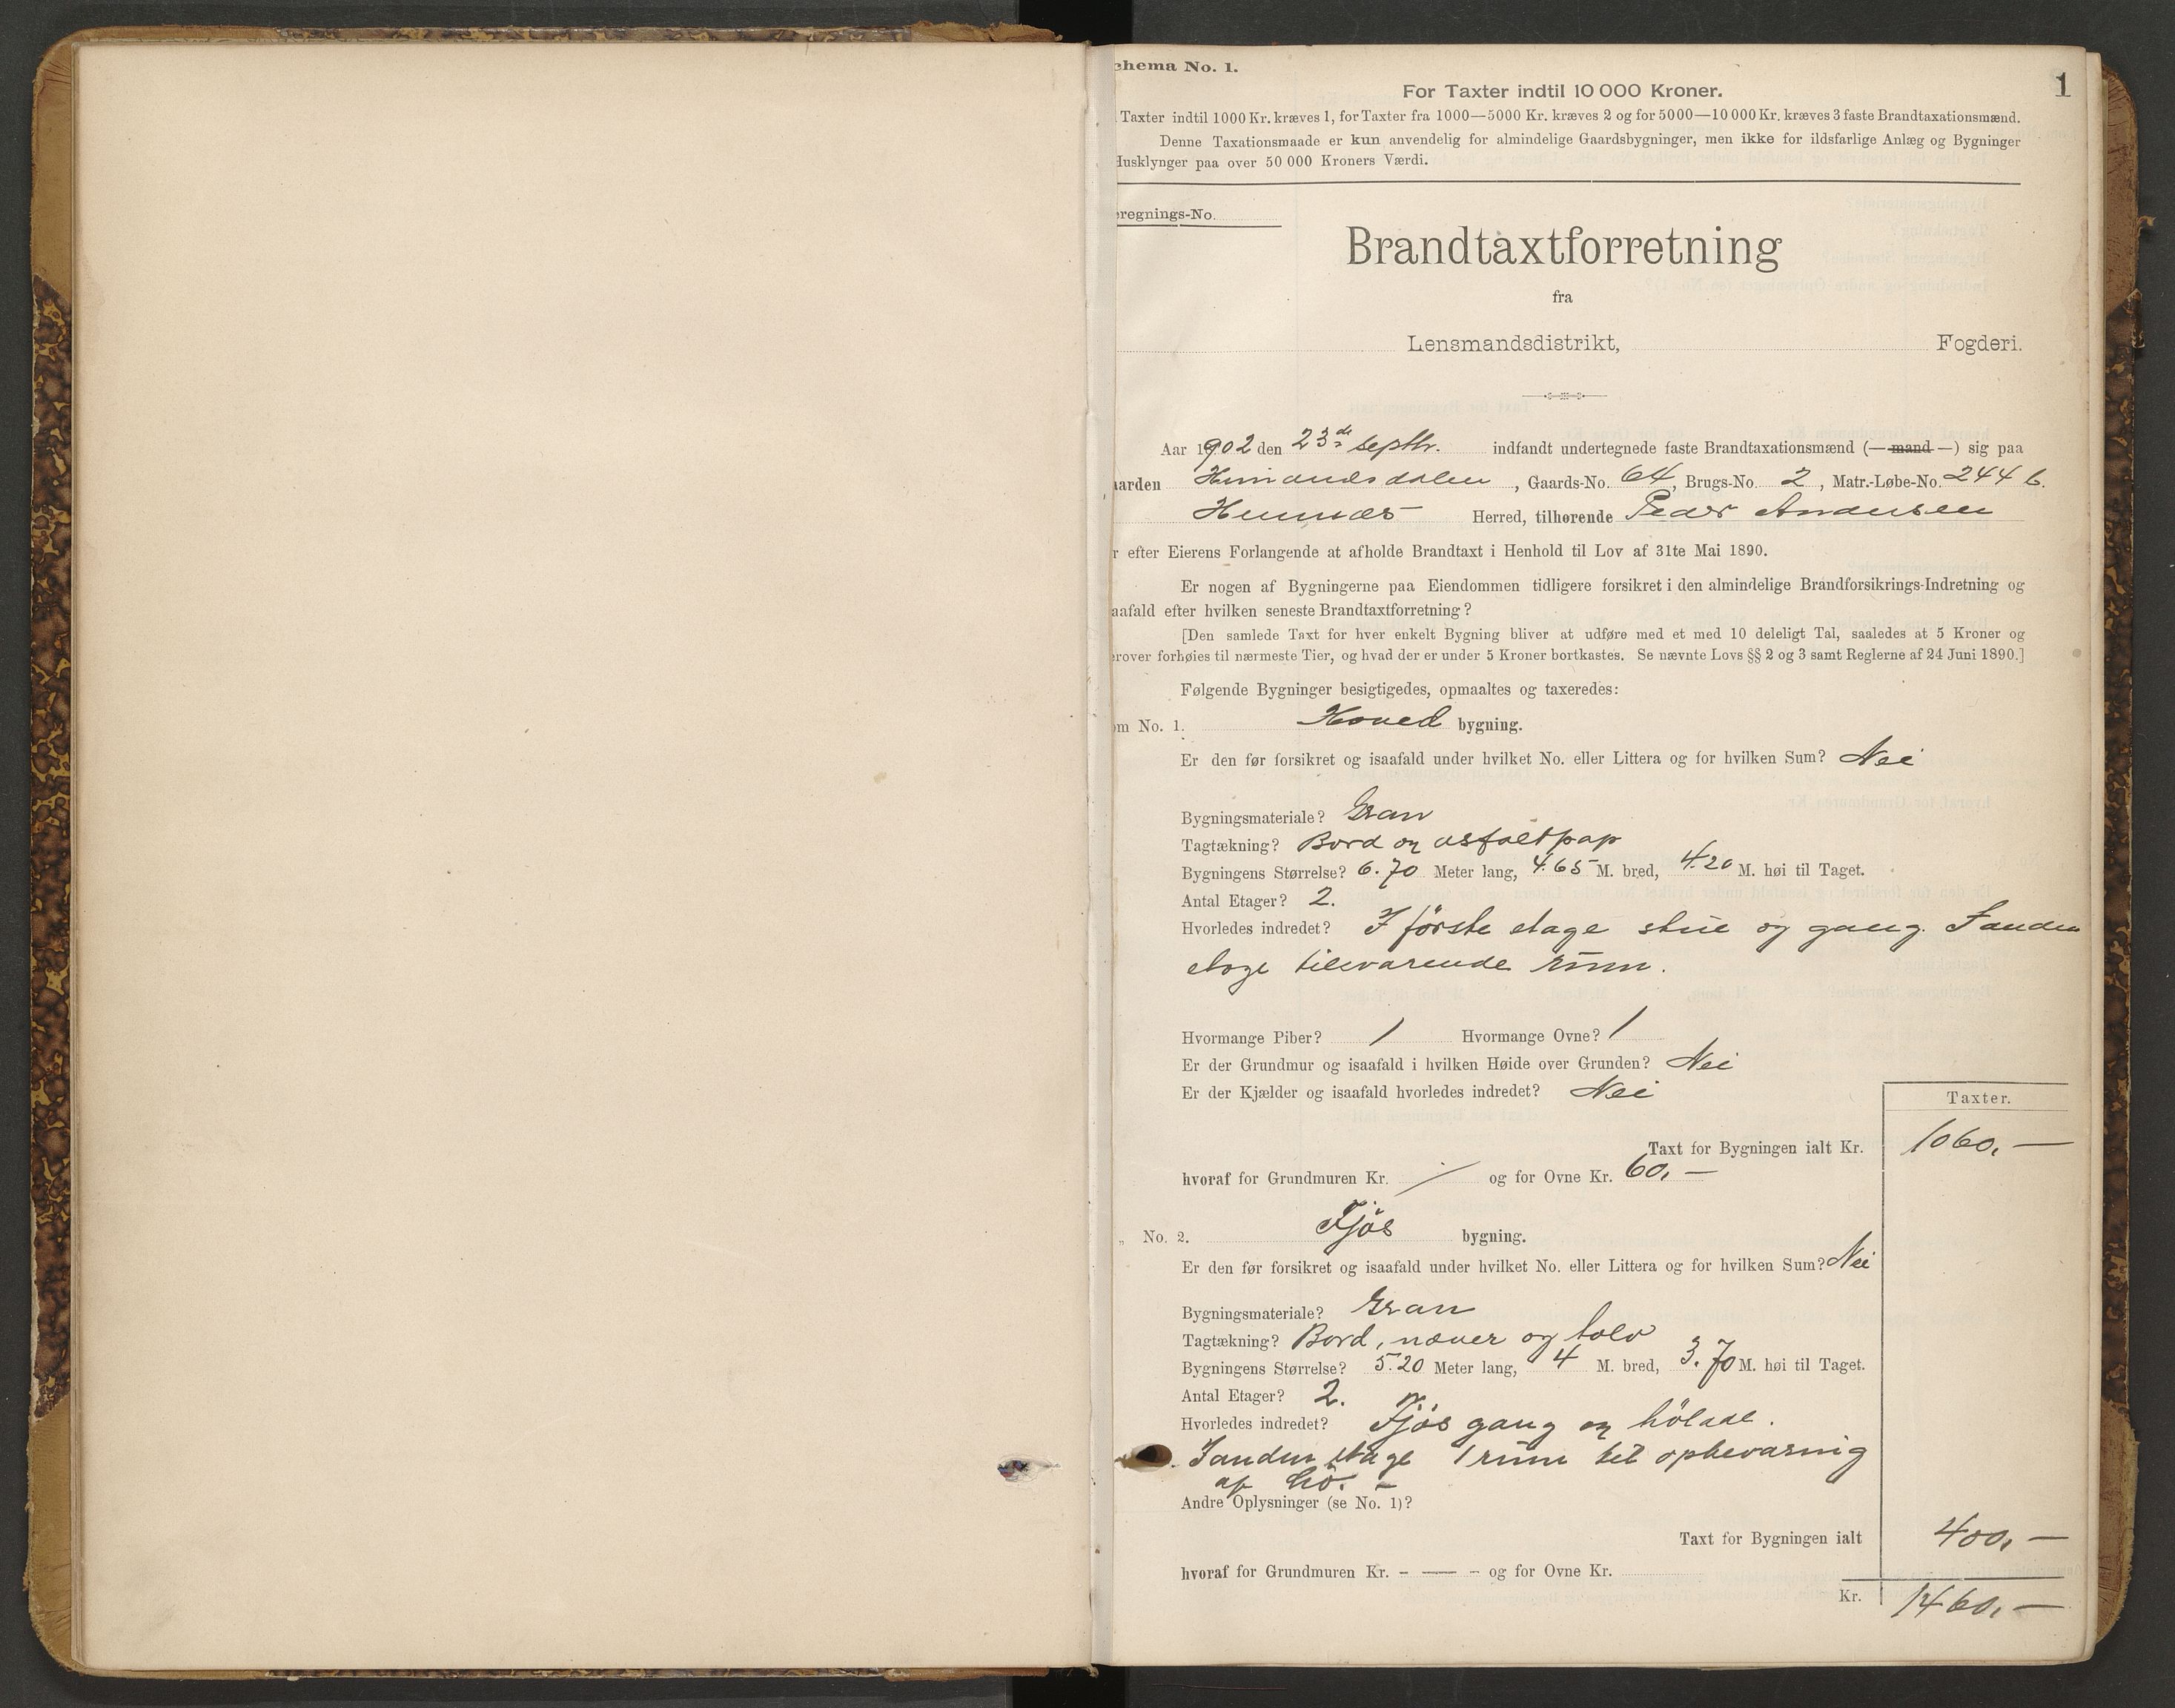 chema No. 1.
1
For Taxter indtil 10 000 Kroner.
Taxter indtil 1000 Kr. kræves 1, for Taxter fra 1000—5000 Kr. kræves 2 og for 5000—10 000 Kr. kræves 3 faste Brandtaxationsmænd.
Denne Taxationsmaade er kun anvendelig for almindelige Gaardsbygninger, men ikke for ildsfarlige Anlæg og Bygninger
Husklynger paa over 50 000 Kroners Værdi.
regnings-No.
Brandtaxtforretning
fra
Lensmandsdistrikt, Fogderi.
Aar 1902 den 23de septbr. indfandt undertegnede faste Brandtaxationsmænd (— mand —) sig paa
aarden , Gaards-No. 64, Brugs-No. 2, Matr.-Løbe-No. 244 b.
Hemnæs Herred, tilhørende Peder Andersen
r efter Eierens Forlangende at afholde Brandtaxt i Henhold til Lov af 31te Mai 1890.
Er nogen af Bygningerne paa Eiendommen tidligere forsikret i den almindelige Brandforsikrings-Indretning og
aafald efter hvilken seneste Brandtaxtforretning?
[Den samlede Taxt for hver enkelt Bygning bliver at udføre med et med 10 deleligt Tal, saaledes at 5 Kroner og
rover forhøies til nærmeste Tier, og hvad der er under 5 Kroner bortkastes. Se nævnte Lovs §§ 2 og 3 samt Reglerne af 24 Juni 1890.]
Følgende Bygninger besigtigedes, opmaaltes og taxeredes:
om No. 1. Hoved bygning.
Er den før forsikret og isaafald under hvilket No. eller Littera og for hvilken Sum? Nei
Bygningsmateriale? Gran
Tagtækning? Bord og asfaltpap
Bygningens Størrelse? 6.70 Meter lang, 4.65 M. bred, 4.20 M. høi til Taget.
Antal Etager? 2.
Hvorledes indredet? I förste etage stue og gang. I anden
etage tilsvarende rum.
Hvormange Piber? 1 Hvormange Ovne? 1
Er der Grundmur og isaafald i hvilken Høide over Grunden? Nei
Er der Kjælder og isaafald hvorledes indredet? Nei
Taxter.
Taxt for Bygningen ialt Kr. 1060,—
hvoraf for Grundmuren Kr. / og for Ovne Kr. 60,—
„ No. 2. Fjös bygning.
Er den før forsikret og isaafald under hvilket No. eller Littera og for hvilken Sum? Nei
Bygningsmateriale? Gran
Tagtækning? Bord, næver og tolv
Bygningens Størrelse? 5.20 Meter lang, 4 M. bred, 3.70 M. høi til Taget.
Antal Etager? 2.
Hvorledes indredet? Fjös gang og hölade.
I anden etage 1 rum til opbevaring
af hö. —
Andre Oplysninger (se No. 1)?
Taxt for Bygningen ialt 400,—
hvoraf for Grundmuren Kr. - — - og for Ovne Kr.
Kr. 1460,—